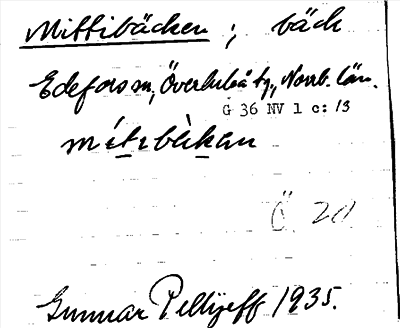 Mittibäcken ; bäck
Edefors sn, Överluleå tg, Norrb. län.
G 36 NV 1 c: 13
mítibèkan
Ö 20
Gunnar Pellijeff 1935.